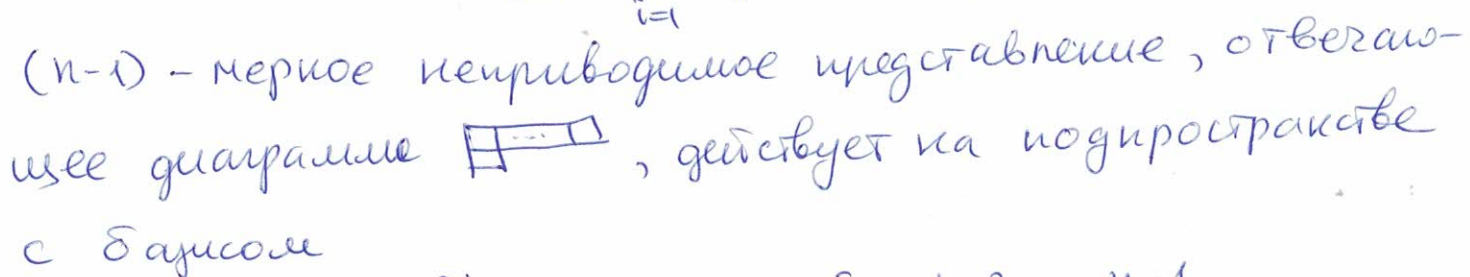 i=1
(n-1) - мерное неприводимое представление, отвечаю-
щее диаграмме , действует на подпространстве
с базисом